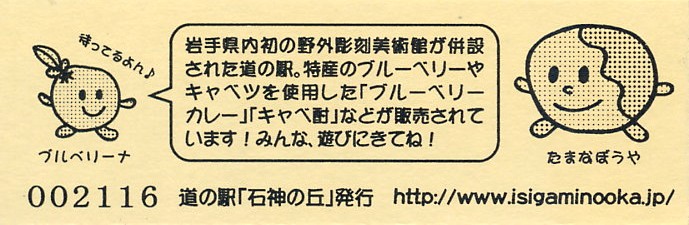 待ってるよん♪
岩手県内初の野外彫刻美術館が併設
された道の駅。特産のブルーベリーや
キャベツを使用した「ブルーベリー
カレー」「キャベ酎」などが販売されて
います！みんな、遊びにきてね！
ブルベリーナ
たまなぼうや
002116 道の駅「石神の丘」発行 http://www.isigaminooka.jp/